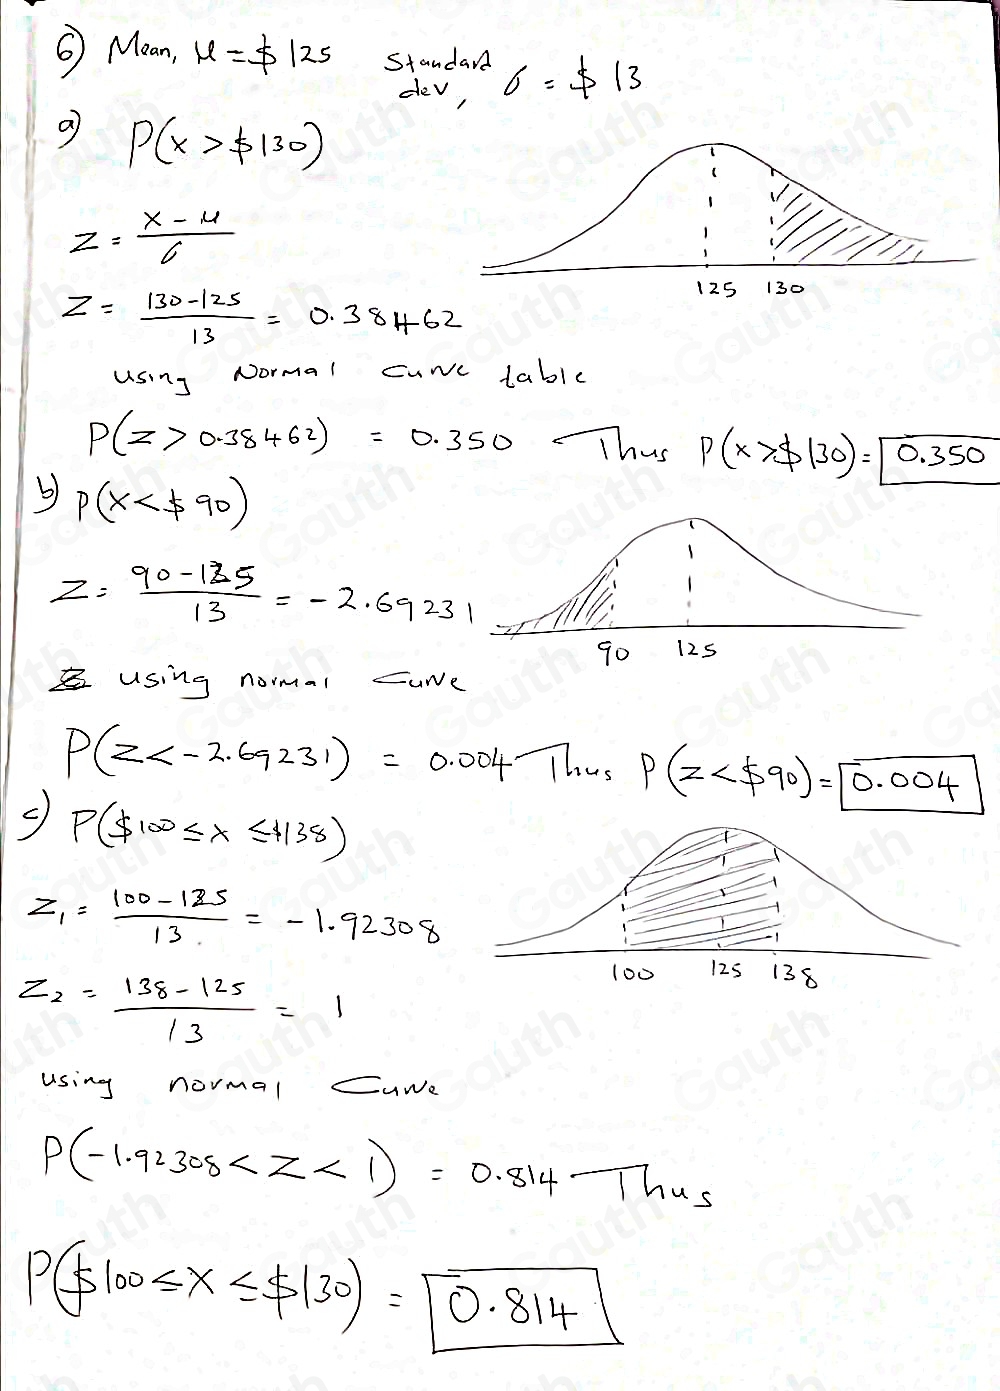 6) Mean, μ = $125 Standard dev, σ = $13
a) P(x > $130)
Z = (x - μ)/σ
125 130
Z = (130-125)/13 = 0.38462
using Normal Curve table
P(Z > 0.38462) = 0.350 Thus P(x > $130) = 0.350
b) P(x < $90)
Z = (90-125)/13 = -2.69231
90 125
using normal Curve
P(Z < -2.69231) = 0.004 Thus P(Z < $90) = 0.004
c) P($100 ≤ x ≤ $138)
Z₁ = (100-125)/13 = -1.92308
100 125 138
Z₂ = (138-125)/13 = 1
using normal Curve
P(-1.92308 < Z < 1) = 0.814 Thus
P($100 ≤ x ≤ $130) = 0.814
Gauth